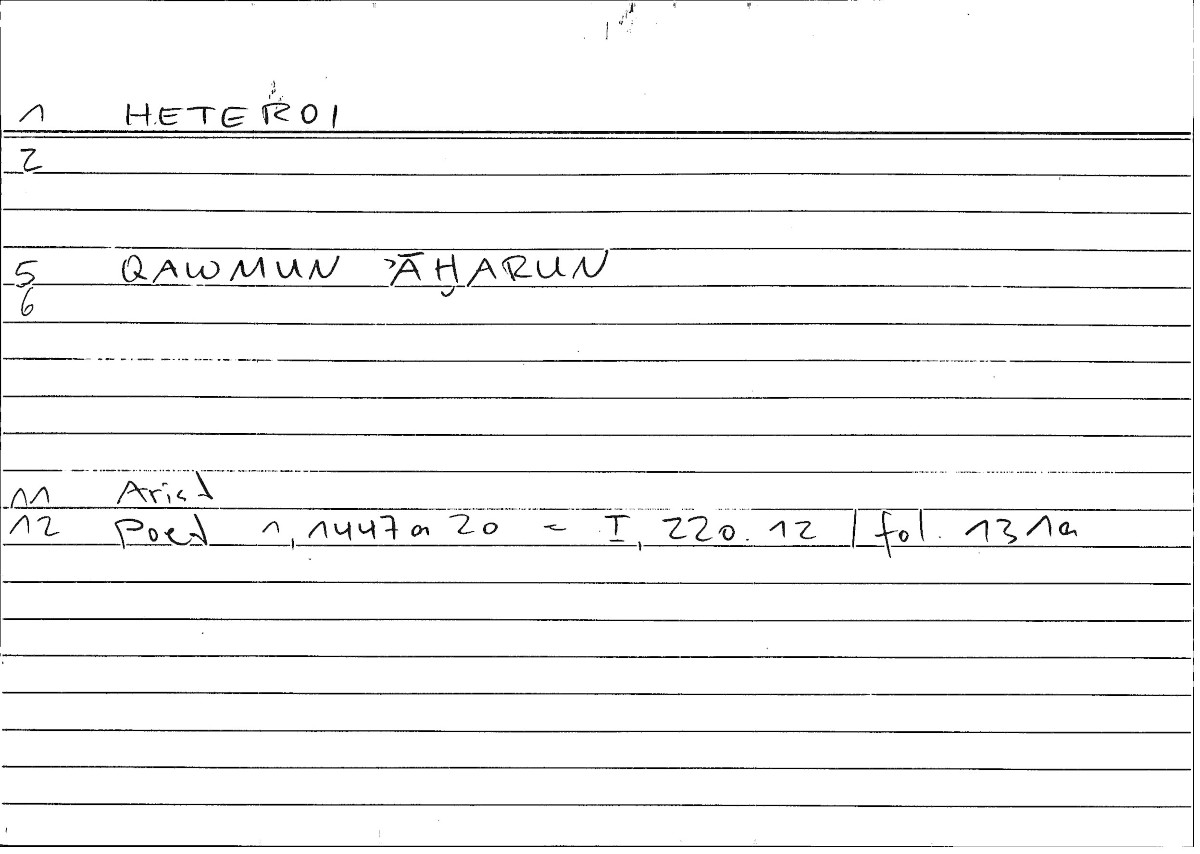 1 HETEROI
2
5 QAWMUN ʾĀḪARUN
6
11 Arist
12 Poet 1, 1447a 20 = I, 220.12 / fol. 131a